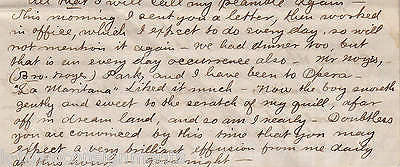 All that I will call my preamble again —
This morning I sent you a letter, then worked
in office, which I expect to do every day, so will
not mention it again — we had dinner too, but
that is an every day occurrence also — Mr Noyes,
(Bro. Noyes) Park, and I have been to Opera —
"La Maritana" Liked it much — Now the boy snoreth
gently and sweet to the scratch of my quill, afar
off in dream land, and so am I nearly — Doubtless
you are convinced by this time that you may
expect a very brilliant effusion from me dancy
at this time of night —